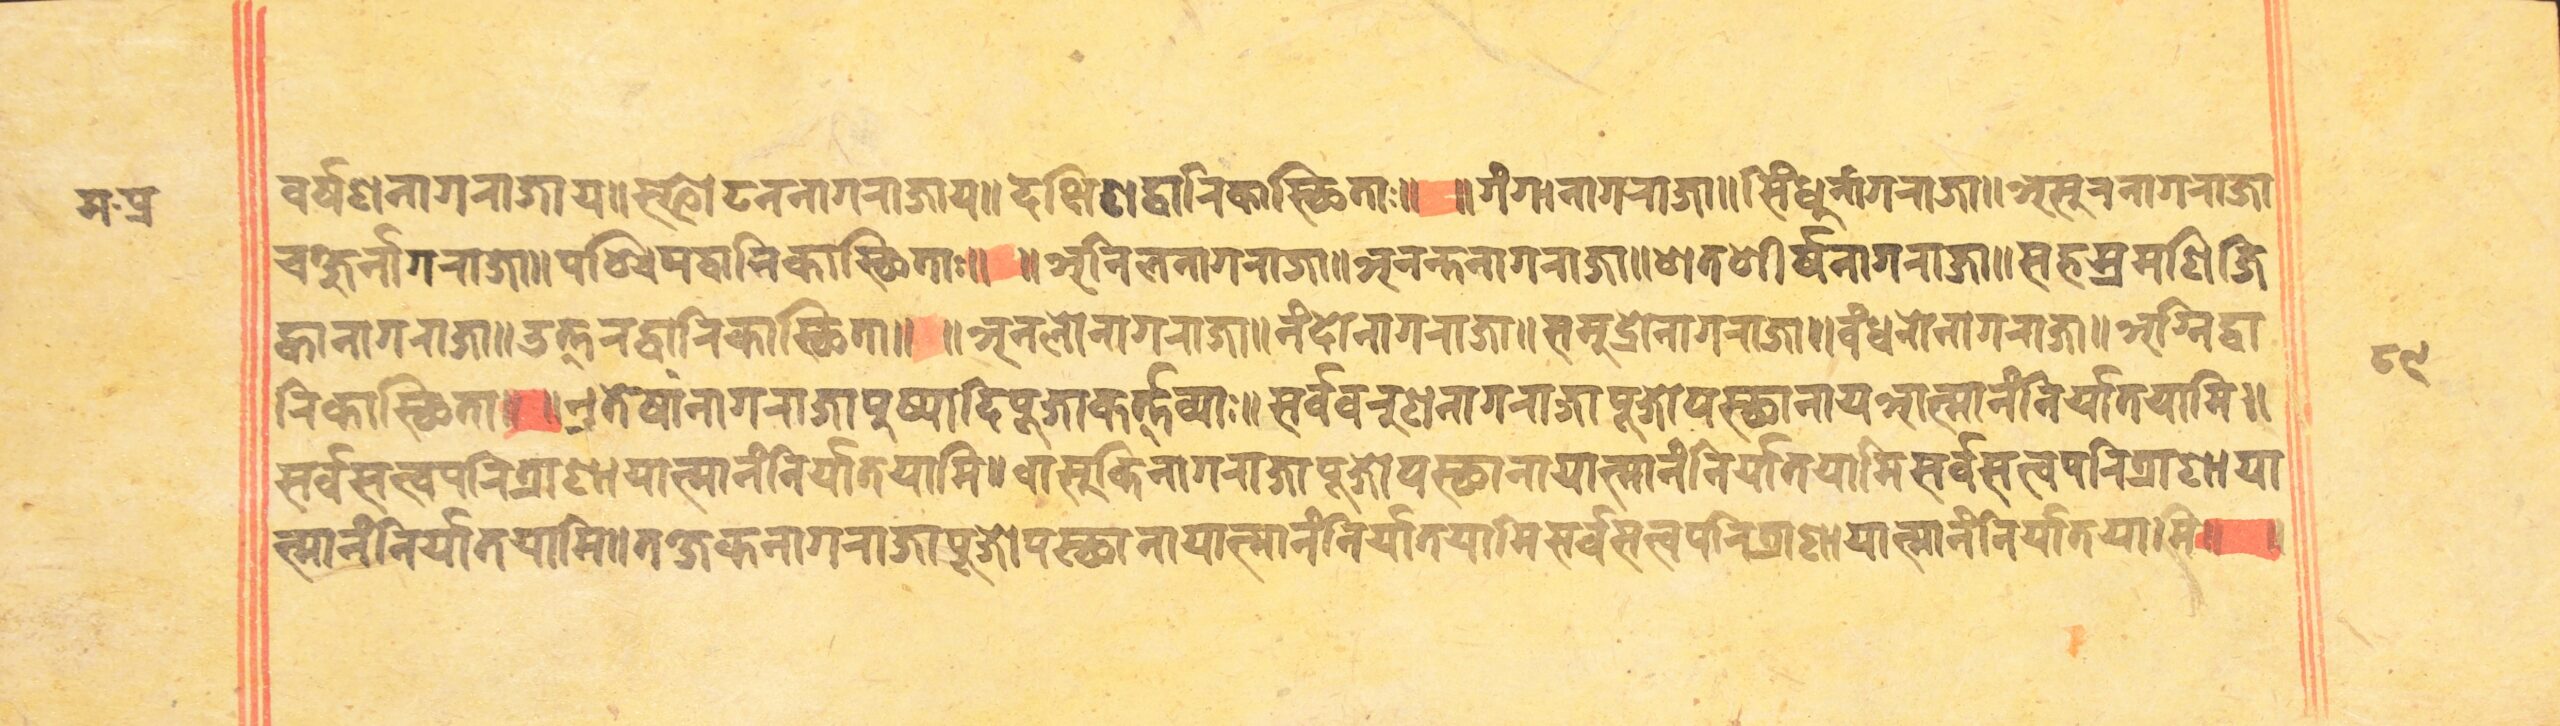 म.प्र
वर्षणनागराजाय॥स्फोटननागराजाय॥दक्षिणद्वारिकास्थिताः॥ ॥गंगानागराजा॥सिंधुर्नागराजा॥असुरनागराजा
चक्षुर्नागराजो॥पश्चिमद्वारिकास्थिताः॥ ॥अनिलनागराजा॥अनन्तनागराजा॥शतशीर्षनागराजा॥सहस्रमणिजि
ह्वानागराजा॥उत्तरद्वारिकास्थिता॥ ॥अनलोनागराजा॥नंदोनागराजा॥समुद्रोनागराजा॥वंधरोनागराजा॥अग्निद्वा
रिकास्थिता॥ ॥एतेषांनागराजापुष्पादिपूजाकर्त्तव्याः॥सर्ववरुणनागराजापूजोपस्थानायआत्मानंनिर्यातयामि॥
सर्वसत्वपरित्राणायात्मानंनिर्यातयामि॥वासुकिनागराजापूजोपस्थानायात्मानंनिर्यातयामिसर्वसत्वपरित्राणाया
त्मानंनिर्यातयामि॥तक्षकनागराजापूजोपस्थानायात्मानंनिर्यातयामिसर्वसत्वपरित्राणायात्मानंनिर्यातयामि॥ ॥
८९